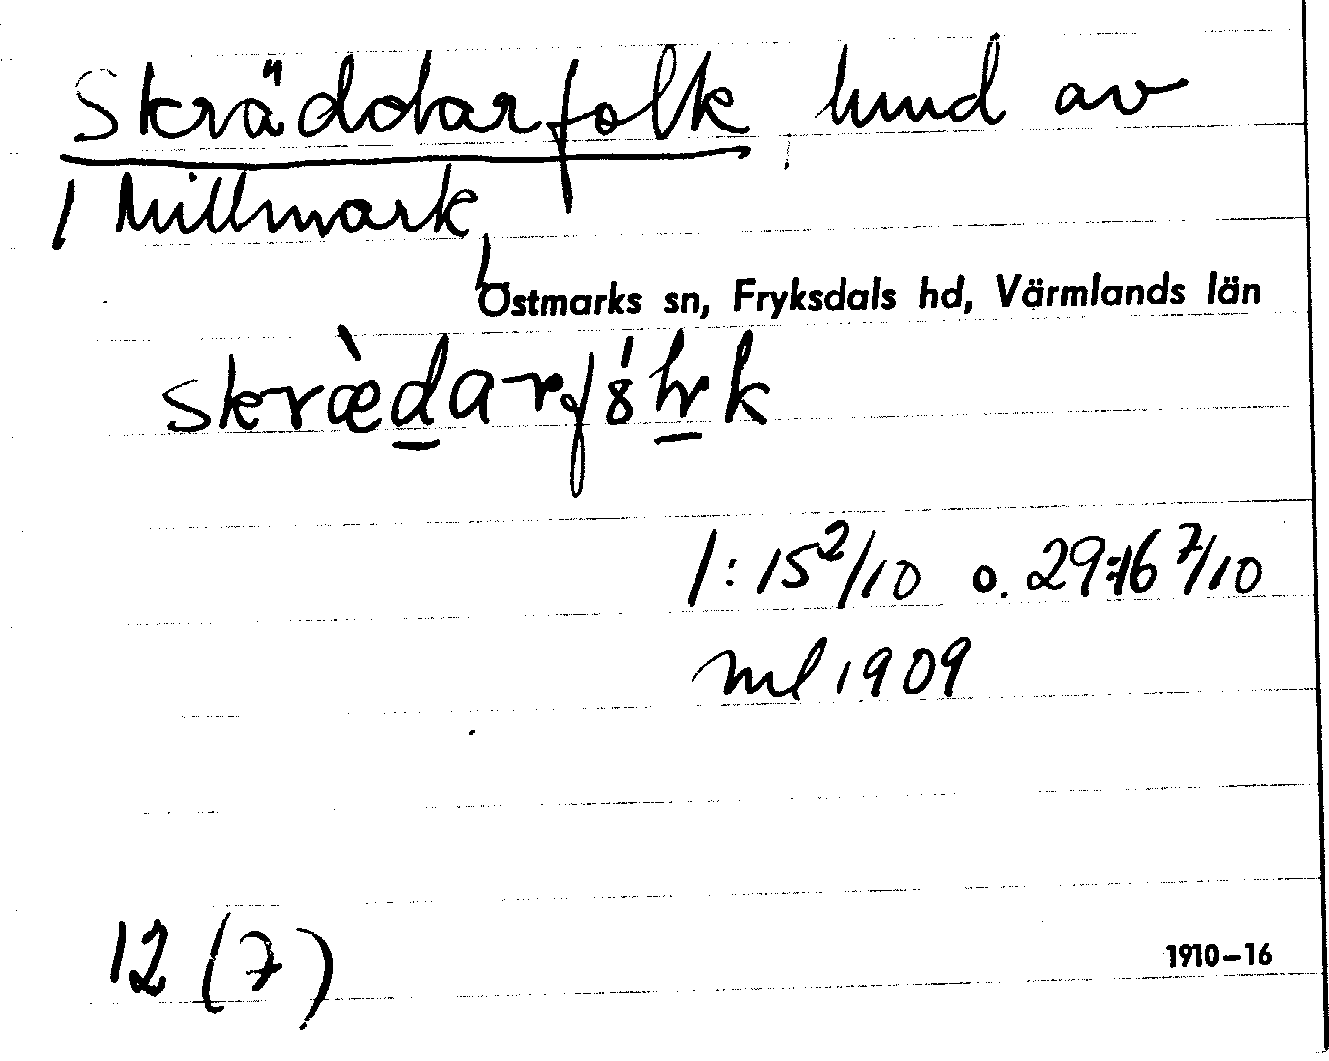 Skräddarfolk, lund av
1 Millmark,
Östmarks sn, Fryksdals hd, Värmlands län
1:15 2/10 o. 29:16 7/10
ml 1909
12 (7)
1910-16